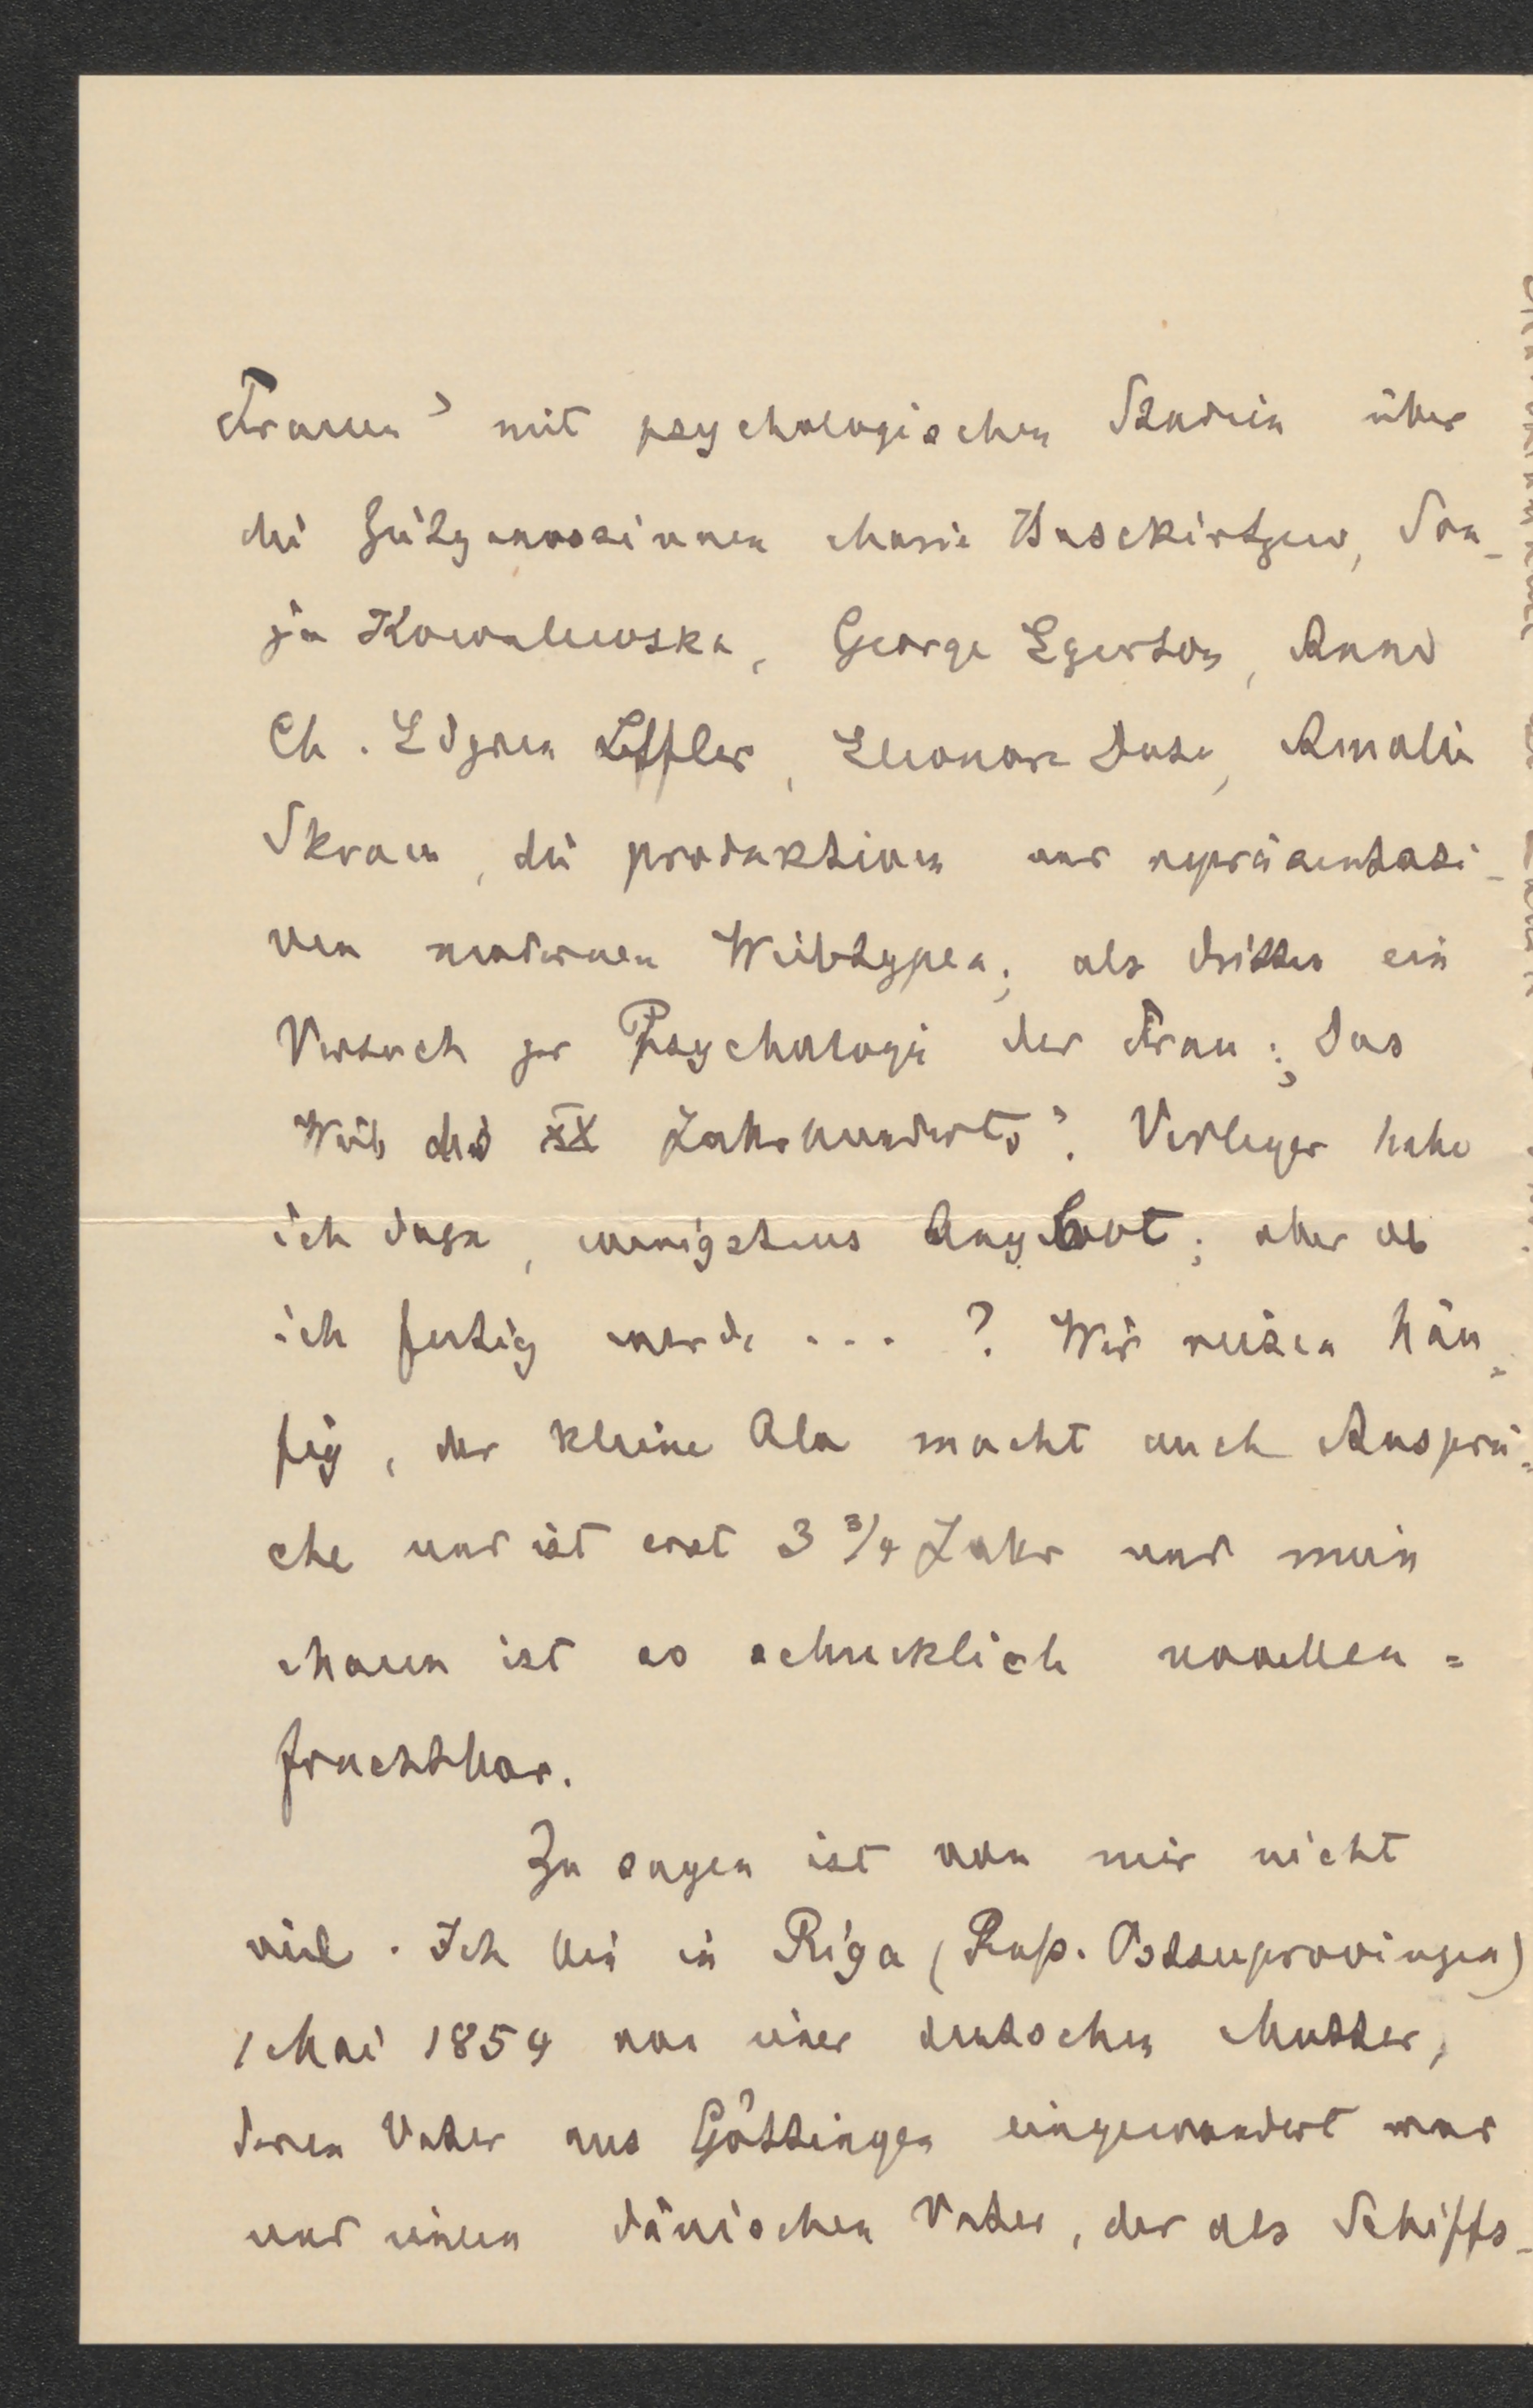 Frauen" mit psychologischen Studien über
die Zeitgenossinnen Marie Baschkirtzew, Son-
ja Kowalewska, George Egerton, Anne
Ch. Edgren Leffler, Eleonore Duse, Amalie
Skram, die produktiven und repräsentati-
ven modernen Weibtypen; als drittes ein
Versuch zur Psychologie der Frau: „Das
Weib des XX Jahrhunderts". Verleger habe
ich dazu, wenigstens Angebot; aber ob
ich fertig werde ...? Wir reisen häu-
fig, der kleine Ola macht auch Ansprü=
che und ist erst 3 3/4 Jahr und mein
Mann ist so schrecklich novellen=
fruchtbar.
Zu sagen ist von mir nicht
viel. Ich bin in Riga (Russ. Ostseeprovinzen)
1 Mai 1854 von einer deutschen Mutter,
deren Vater aus Göttingen eingewandert war
und einem dänischen Vater, der als Schiffs-